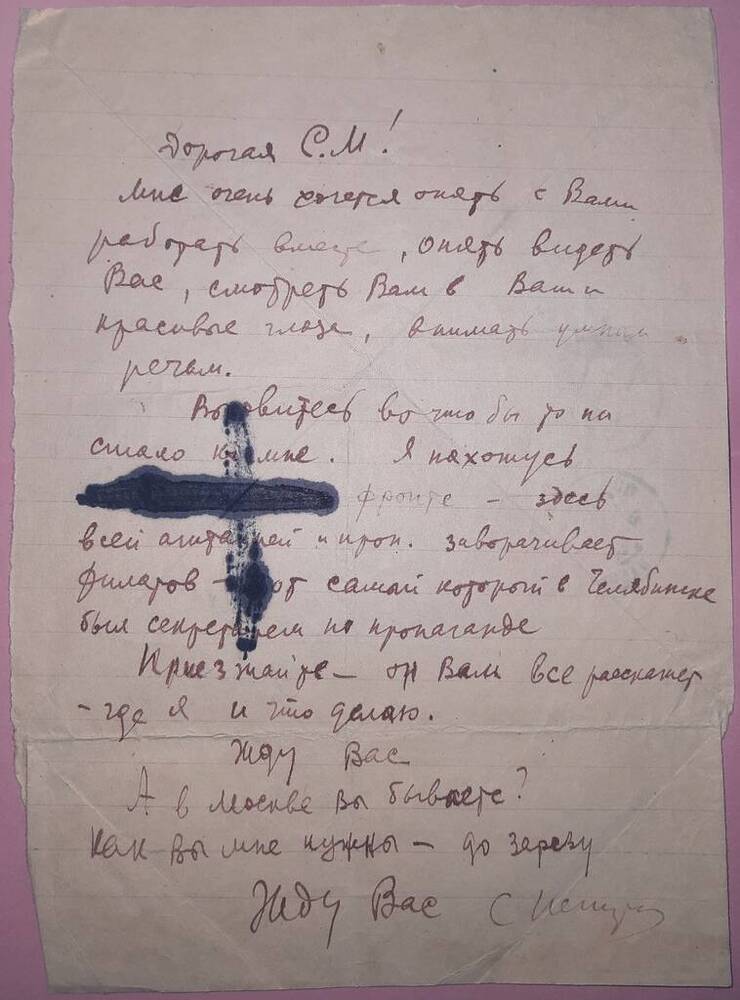 Дорогая С.М!
Мне очень хочется опять с Вами
работать вместе, опять видеть
Вас, смотреть Вам в Ваши
красивые глаза, внимать умным
речам.
во что бы то ни
стало ко мне. Я нахожусь
фронте - здесь
всей агитацией и проп. заворачивает
Филатов - тот самый который в Челябинске
был секретарем по пропаганде
Приезжайте - он Вам все расскажет
- где я и что делаю.
Жду Вас
А в Москве Вы бываете?
Как Вы мне нужны - до зарезу
Жду Вас С